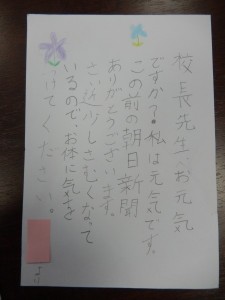 校長先生へお元気
ですか?私は元気です。
この前の朝日新聞
ありがとうございます。
さい近少しさむくなって
いるので、お体に気を
つけてください。
より